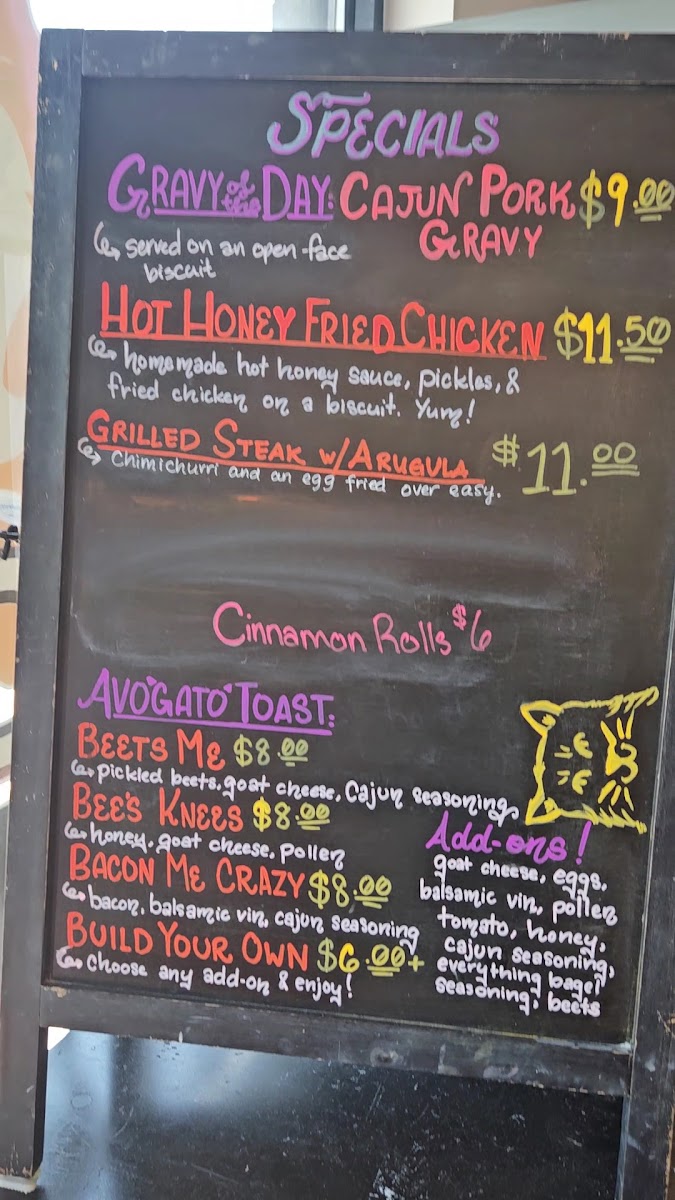 SPECIALS
GRAVY of the DAY: CAJUN PORK $9.00
GRAVY
served on an open-face
biscuit
HOT HONEY FRIED CHICKEN $11.50
homemade hot honey sauce, pickles, &
fried chicken on a biscuit. Yum!
GRILLED STEAK W/ARUGULA $11.00
Chimichurri and an egg fried over easy.
Cinnamon Rolls $6
AVO"GATO" TOAST:
BEETS ME $8.00
pickled beets, goat cheese, Cajun seasoning
BEE'S KNEES $8.00
honey, goat cheese, pollen
BACON ME CRAZY $8.00
bacon, balsamic vin, cajun seasoning
BUILD YOUR OWN $6.00+
choose any add-on & enjoy!
Add-ons!
goat cheese, eggs,
balsamic vin, pollen
tomato, honey,
cajun seasoning,
everything bagel
seasoning, beets